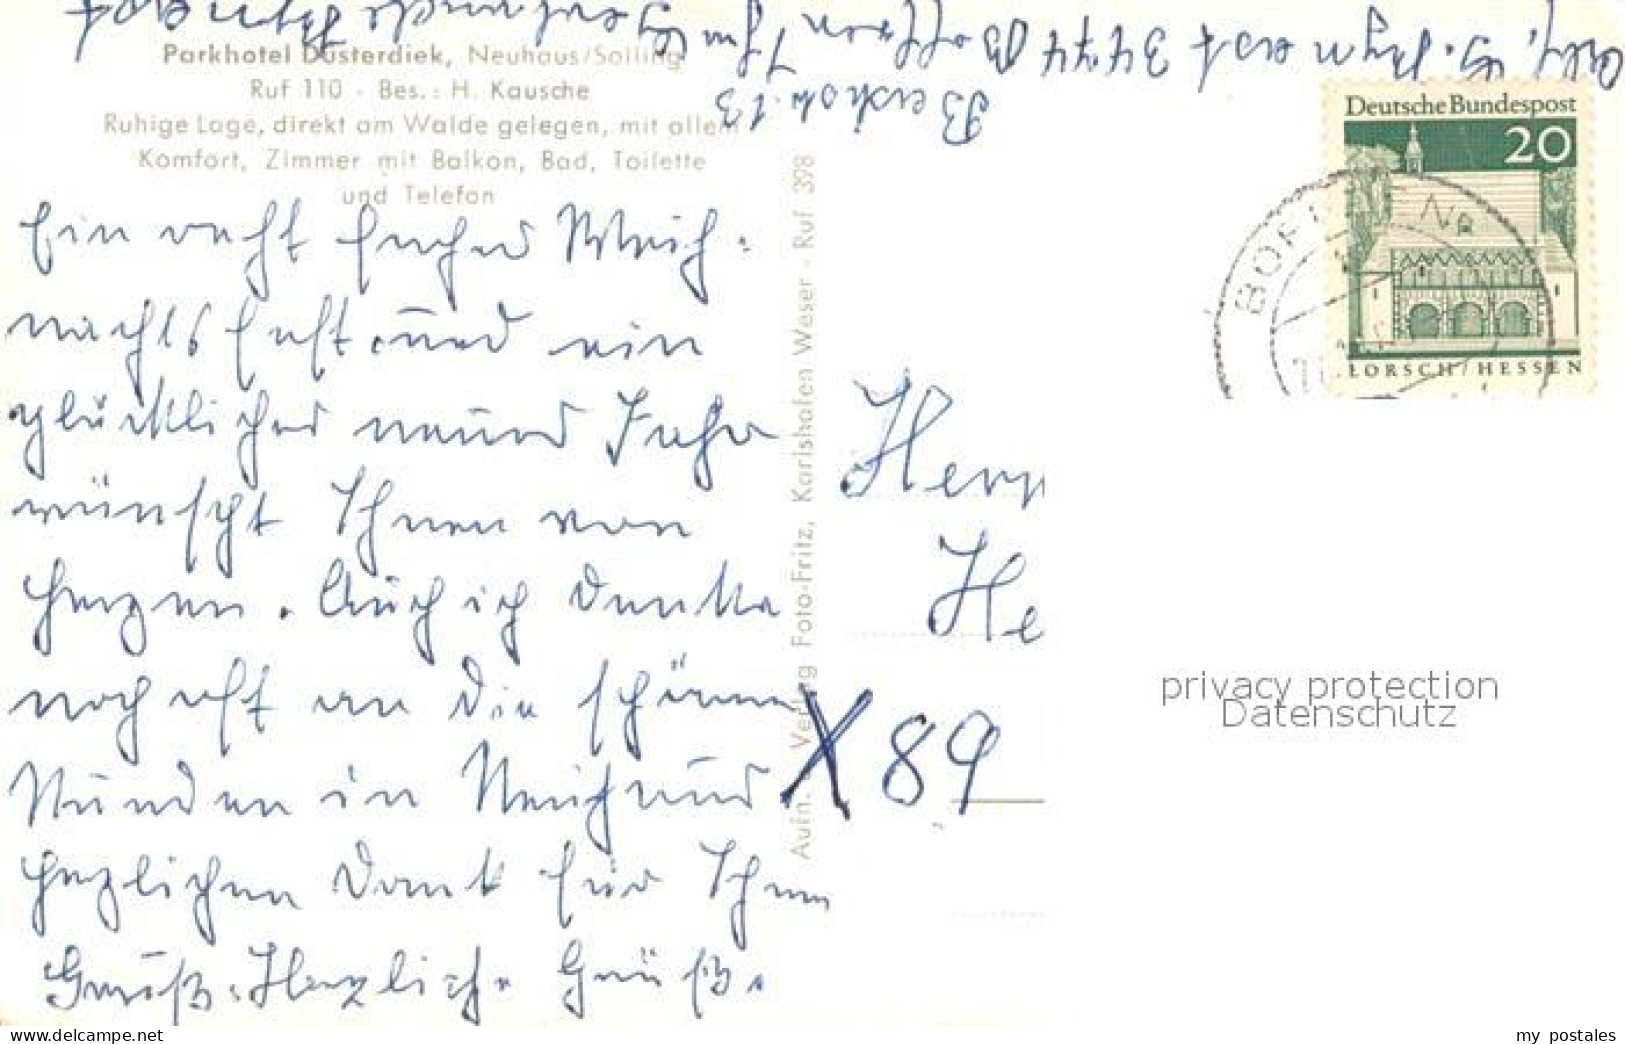 Parkhotel Düsterdiek, Neuhaus/Solling
Ruf 110 - Bes.: H. Kausche
Ruhige Lage, direkt am Walde gelegen, mit allem
Komfort, Zimmer mit Balkon, Bad, Toilette
und Telefon
Ein recht frohes Weih-
nachtsfest und ein
glückliches neues Jahr
wünscht Ihnen von
Herzen. Auch ich denke
noch oft an die schönen
Stunden in
herzlichen Dank für Ihren
Gruß. Herzliche Grüße.
3474 Boffzen
13
Aufn. u. Verlag Foto-Fritz, Karlshafen Weser - Ruf 398
Deutsche Bundespost
20
LORSCH/HESSEN
BOFF
Herrn
He
X 89
privacy protection
Datenschutz
www.delcampe.net
my_postales